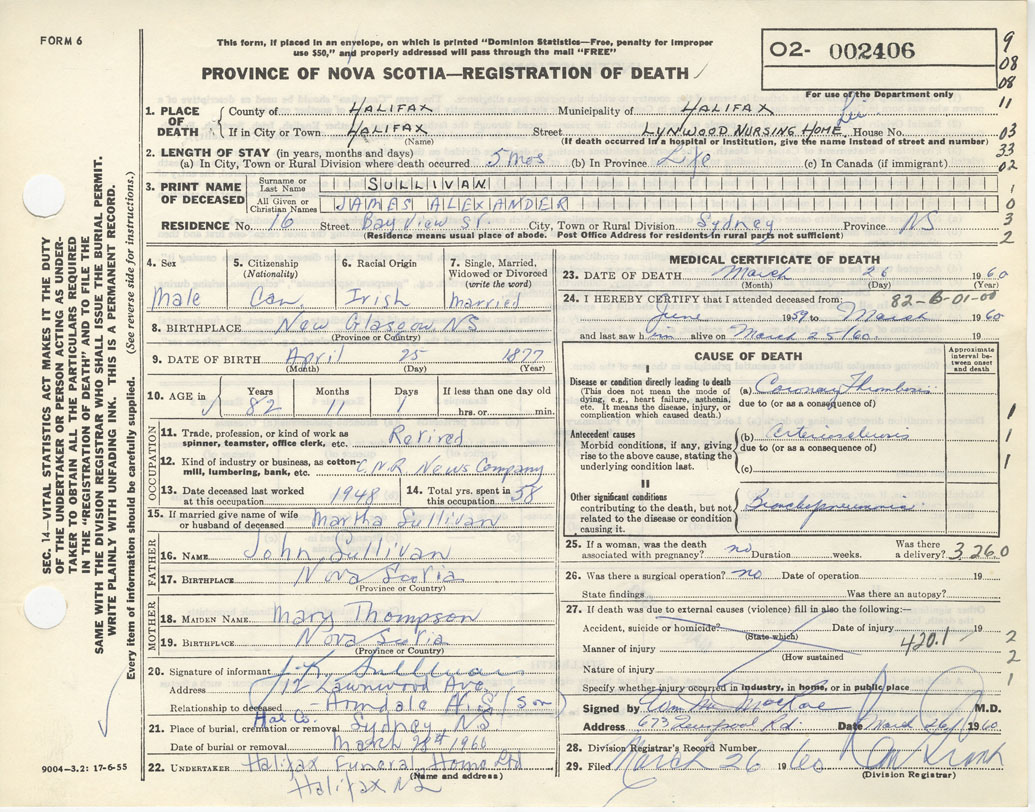 FORM 6
This form, if placed in an envelope, on which is printed "Dominion Statistics—Free, penalty for improper
use $50," and properly addressed will pass through the mail "FREE"
PROVINCE OF NOVA SCOTIA—REGISTRATION OF DEATH
O2- 002406
For use of the Department only
9
08
08
11
03
33
02
1
0
3
2
SEC. 14—VITAL STATISTICS ACT MAKES IT THE DUTY
OF THE UNDERTAKER OR PERSON ACTING AS UNDER-
TAKER TO OBTAIN ALL THE PARTICULARS REQUIRED
IN THE "REGISTRATION OF DEATH" AND TO FILE THE
SAME WITH THE DIVISION REGISTRAR WHO SHALL ISSUE THE BURIAL PERMIT.
WRITE PLAINLY WITH UNFADING INK. THIS IS A PERMANENT RECORD.
Every item of information should be carefully supplied. (See reverse side for instructions.)
1. PLACE OF DEATH County of HALIFAX Municipality of HALIFAX
If in City or Town HALIFAX Street LYNWOOD NURSING HOME House No.
(Name) (If death occurred in a hospital or institution, give the name instead of street and number)
2. LENGTH OF STAY (in years, months and days)
(a) In City, Town or Rural Division where death occurred 5 mos (b) In Province Life (c) In Canada (if immigrant)
3. PRINT NAME OF DECEASED Surname or Last Name SULLIVAN
All Given or Christian Names JAMES ALEXANDER
RESIDENCE No. 16 Street Bay View St. City, Town or Rural Division Sydney Province NS
(Residence means usual place of abode. Post Office Address for residents in rural parts not sufficient)
4. Sex 5. Citizenship (Nationality) 6. Racial Origin 7. Single, Married, Widowed or Divorced (write the word)
Male Can. Irish Married
8. BIRTHPLACE New Glasgow NS
(Province or Country)
9. DATE OF BIRTH April 25 1877
(Month) (Day) (Year)
10. AGE in Years Months Days If less than one day old
82 11 1 hrs. or min.
OCCUPATION
11. Trade, profession, or kind of work as spinner, teamster, office clerk, etc. Retired
12. Kind of industry or business, as cotton-mill, lumbering, bank, etc. CNR News Company
13. Date deceased last worked at this occupation 1948 14. Total yrs. spent in this occupation 58
15. If married give name of wife or husband of deceased Martha Sullivan
FATHER
16. NAME John Sullivan
17. BIRTHPLACE Nova Scotia
(Province or Country)
MOTHER
18. MAIDEN NAME Mary Thompson
19. BIRTHPLACE Nova Scotia
(Province or Country)
20. Signature of informant Sullivan
Address 12 Lawnwood Ave.
Relationship to deceased Armdale N.S. (Son)
Hal Co.
21. Place of burial, cremation or removal Sydney NS
Date of burial or removal March 28th 1960
22. UNDERTAKER Halifax Funeral Home Ltd
(Name and address)
Halifax NS
9004-3.2: 17-6-55
MEDICAL CERTIFICATE OF DEATH
23. DATE OF DEATH March 26 1960
(Month) (Day) (Year)
24. I HEREBY CERTIFY that I attended deceased from: 82-B-01-00
June 1959 to March 1960
and last saw him alive on March 25/60.
CAUSE OF DEATH
Approximate interval between onset and death
I
Disease or condition directly leading to death
(This does not mean the mode of dying, e.g., heart failure, asthenia, etc. It means the disease, injury, or complication which caused death.)
(a) Coronary Thrombosis
due to (or as a consequence of)
Antecedent causes
Morbid conditions, if any, giving rise to the above cause, stating the underlying condition last.
(b) Arteriosclerosis
due to (or as a consequence of)
(c)
II
Other significant conditions
contributing to the death, but not related to the disease or condition causing it.
Bronchopneumonia
1
1
1
25. If a woman, was the death associated with pregnancy? no Duration weeks. Was there a delivery? 3260
26. Was there a surgical operation? no Date of operation 19
State findings Was there an autopsy?
27. If death was due to external causes (violence) fill in also the following:—
Accident, suicide or homicide? Date of injury 19
(State which)
Manner of injury 420.1
(How sustained)
Nature of injury
2
2
1
Specify whether injury occurred in industry, in home, or in public place
Signed by Wm. M. MacRae M.D.
Address 673 Rd. Date March 26/ 1960
28. Division Registrar's Record Number
29. Filed March 26 1960
(Division Registrar)